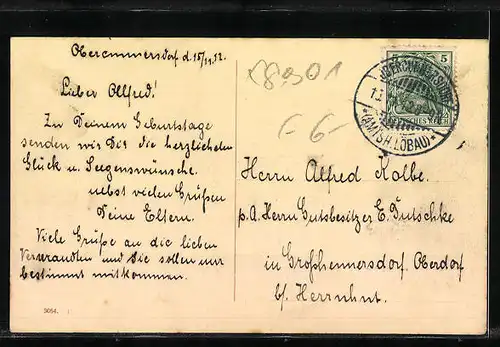 Obercunnersdorf d. 15/11.12.
Lieber Allfred!
Zu Deinem Geburtstage
senden wir Dit die herzlichsten
Glück u. Seegenswünsche.
nebst vielen Grüßen
Deine Eltern.
Viele Grüße an die lieben
Verwandten und Sie sollen nur
bestimmt mitkommen.
5084.
68901
-6-
5
OBERCUNNERSDORF
DEUTSCHES REICH
*(AMTSH. LÖBAU)*
Herrn Alfred Kolbe.
p. A. Herrn Gutsbesitzer E. Tutschke
in Großhennersdorf. Oberdorf
b/. Herrnhut.